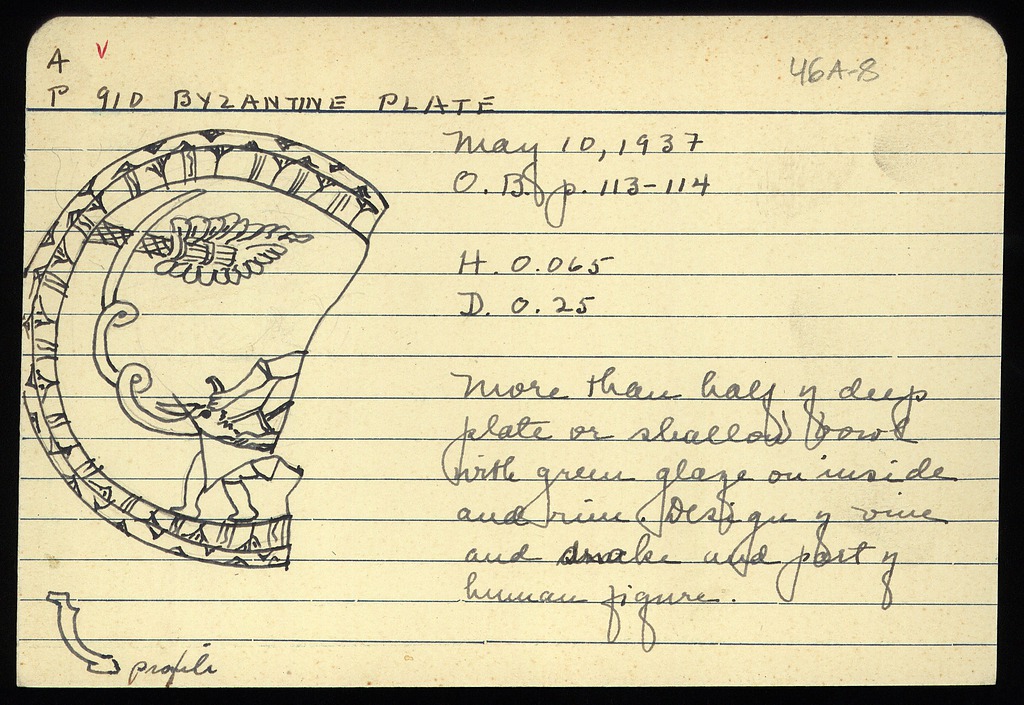 A V
46A-8
P 910 BYZANTINE PLATE
May 10, 1937
O.B. p. 113-114
H. 0.065
D. 0.25
More than half of deep
plate or shallow bowl
with green glaze on inside
and rim. Design of vine
and snake and part of
human figure.
profile